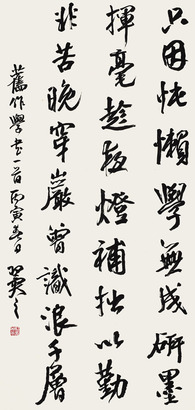 只因性懶學無成硏墨
揮毫趁夜燈補拙以勤
非苦晚穿巖曾識浪千層
舊作學書一首丙寅春日